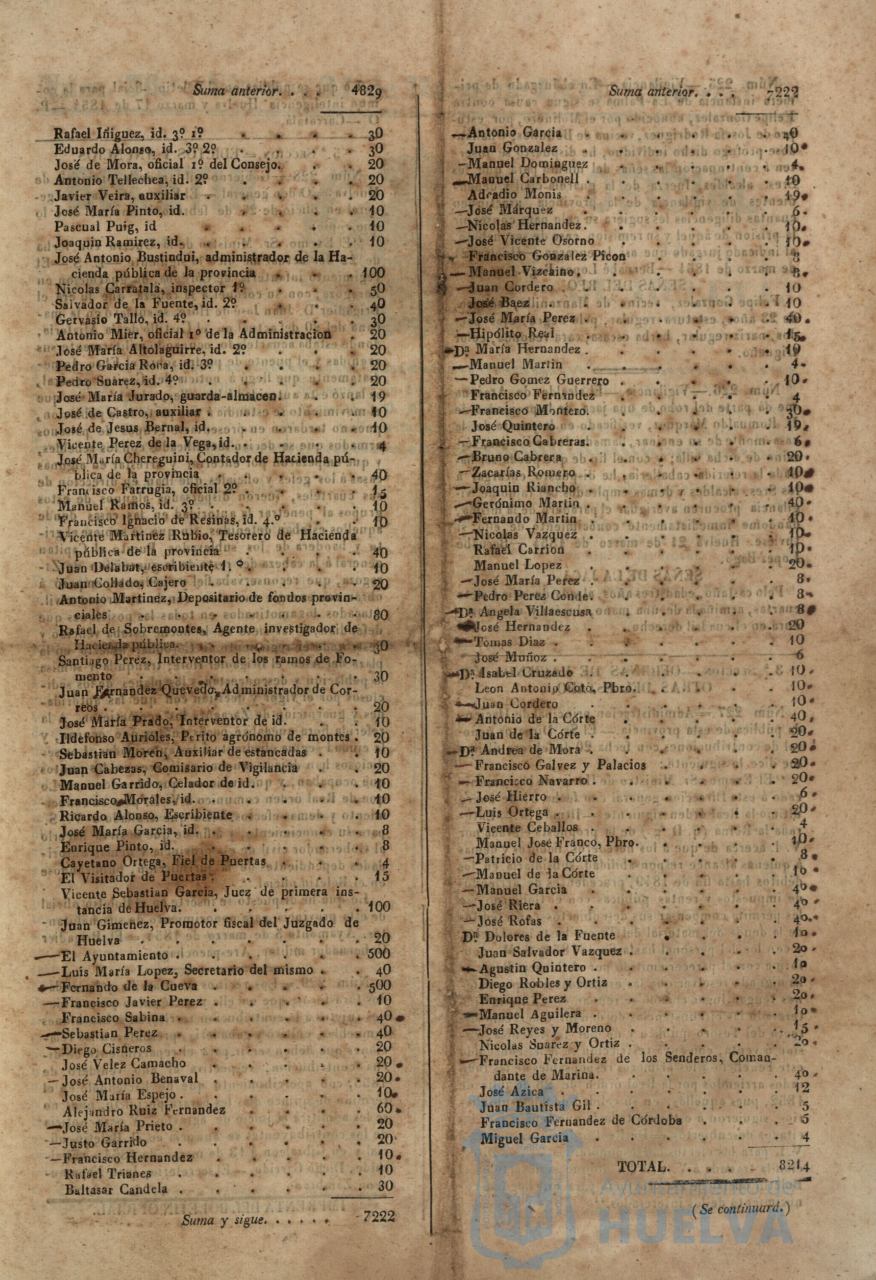 Suma anterior. . . . 4829
Rafael Iñiguez, id. 3º 1º . . . . 30
Eduardo Alonso, id. 3º 2º . . . . 30
José de Mora, oficial 1º del Consejo. . . 20
Antonio Tellechea, id. 2º . . . . 20
Javier Veira, auxiliar . . . . . 20
José María Pinto, id. . . . . 10
Pascual Puig, id . . . . . 10
Joaquin Ramirez, id. . . . . . 10
José Antonio Bustindui, administrador de la Ha-
cienda pública de la provincia . . . 100
Nicolas Carratalá, inspector 1º . . . 50
Salvador de la Fuente, id. 2º . . . 40
Gervasio Tallo, id. 4º . . . . . 30
Antonio Mier, oficial 1º de la Administracion . 20
José María Altolaguirre, id. 2º . . . 20
Pedro Garcia Rona, id. 3º . . . . 20
Pedro Suarez, id. 4º . . . . . 20
José María Jurado, guarda-almacen. . . 19
José de Castro, auxiliar . . . . . 10
José de Jesus Bernal, id. . . . . 10
Vicente Perez de la Vega, id. . . . . 4
José María Chereguini, Contador de Hacienda pú-
blica de la provincia . . . . . 40
Francisco Farrugia, oficial 2º . . . . 15
Manuel Ramos, id. 3º . . . . . 10
Francisco Ignacio de Resinas, id. 4.º . . 10
Vicente Martinez Rubio, Tesorero de Hacienda
pública de la provincia . . . . 40
Juan Delabat, escribiente 1.º . . . . 10
Juan Collado, Cajero . . . . . 20
Antonio Martinez, Depositario de fondos provin-
ciales . . . . . . . 80
Rafael de Sobremontes, Agente investigador de
Hacienda pública. . . . . . 30
Santiago Perez, Interventor de los ramos de Fo-
mento . . . . . . . 30
Juan Fernandez Quevedo, Administrador de Cor-
reos . . . . . . . . 20
José María Prado, Interventor de id. . . 10
Ildefonso Aurioles, Perito agrónomo de montes . 20
Sebastian Moren, Auxiliar de estancadas . . 10
Juan Cabezas, Comisario de Vigilancia . . 20
Manuel Garrido, Celador de id. . . . 10
Francisco Morales, id. . . . . . 10
Ricardo Alonso, Escribiente . . . . 10
José María Garcia, id. . . . . . 8
Enrique Pinto, id. . . . . . 8
Cayetano Ortega, Fiel de Puertas . . . 4
El Visitador de Puertas . . . . . 15
Vicente Sebastian Garcia, Juez de primera ins-
tancia de Huelva. . . . . . 100
Juan Gimenez, Promotor fiscal del Juzgado de
Huelva . . . . . . . 20
El Ayuntamiento . . . . . . 500
Luis María Lopez, Secretario del mismo . . 40
Fernando de la Cueva . . . . . 500
Francisco Javier Perez . . . . . 10
Francisco Sabina . . . . . . 40
Sebastian Perez . . . . . . 40
Diego Cisneros . . . . . . 20
José Velez Camacho . . . . . 20
José Antonio Benaval . . . . . 20
José María Espejo . . . . . . 10
Alejandro Ruiz Fernandez . . . . 60
José María Prieto . . . . . . 20
Justo Garrido . . . . . . 20
Francisco Hernandez . . . . . 10
Rafael Trianes . . . . . . 10
Baltasar Candela . . . . . . 30
Suma y sigue. . . . . . 7222
Suma anterior. . . . 7222
Antonio Garcia . . . . . . 40
Juan Gonzalez . . . . . . 10
Manuel Dominguez . . . . . 4
Manuel Carbonell . . . . . . 10
Adradio Monis . . . . . . 19
José Márquez . . . . . . 6
Nicolas Hernandez. . . . . . 10
José Vicente Osorno . . . . . 10
Francisco Gonzalez Picon . . . . 8
Manuel Vizcaino. . . . . . 8
Juan Cordero . . . . . . 10
José Baez . . . . . . . 10
José María Perez . . . . . . 40
Hipólito Real . . . . . . 15
Dª María Hernandez . . . . . 19
Manuel Martin . . . . . . 4
Pedro Gomez Guerrero . . . . . 10
Francisco Fernandez . . . . . 4
Francisco Montero. . . . . . 30
José Quintero . . . . . . 19
Francisco Cabreras. . . . . . 6
Bruno Cabrera . . . . . . 20
Zacarías Romero . . . . . . 10
Joaquin Riancho . . . . . . 10
Gerónimo Martin . . . . . . 40
Fernando Martin . . . . . . 10
Nicolas Vazquez . . . . . . 10
Rafael Carrion . . . . . . 10
Manuel Lopez . . . . . . 20
José María Perez . . . . . . 8
Pedro Perez Conde. . . . . . 8
Dª Angela Villaescusa . . . . . 8
José Hernandez . . . . . . 20
Tomas Diaz . . . . . . . 10
José Muñoz . . . . . . . 6
Dª Isabel Cruzado . . . . . 10
Leon Antonio Coto, Pbro. . . . . 10
Juan Cordero . . . . . . 10
Antonio de la Córte . . . . . 40
Juan de la Córte . . . . . . 20
Dª Andrea de Mora . . . . . 20
Francisco Galvez y Palacios . . . . 20
Francisco Navarro . . . . . . 20
José Hierro . . . . . . . 6
Luis Ortega . . . . . . . 20
Vicente Ceballos . . . . . . 4
Manuel José Franco, Pbro. . . . . 10
Patricio de la Córte . . . . . 8
Manuel de la Córte . . . . . 10
Manuel Garcia . . . . . . 40
José Riera . . . . . . . 40
José Rofas . . . . . . . 40
Dª Dolores de la Fuente . . . . 10
Juan Salvador Vazquez . . . . . 20
Agustin Quintero . . . . . . 10
Diego Robles y Ortiz . . . . . 20
Enrique Perez . . . . . . 20
Manuel Aguilera . . . . . . 10
José Reyes y Moreno . . . . . 15
Nicolas Suarez y Ortiz . . . . . 20
Francisco Fernandez de los Senderos, Coman-
dante de Marina. . . . . . 40
José Azica . . . . . . . 12
Juan Bautista Gil . . . . . . 5
Francisco Fernandez de Córdoba . . . 5
Miguel Garcia . . . . . . 4
TOTAL. . . . . 8214
(Se continuará.)
Ayuntamiento de
HUELVA